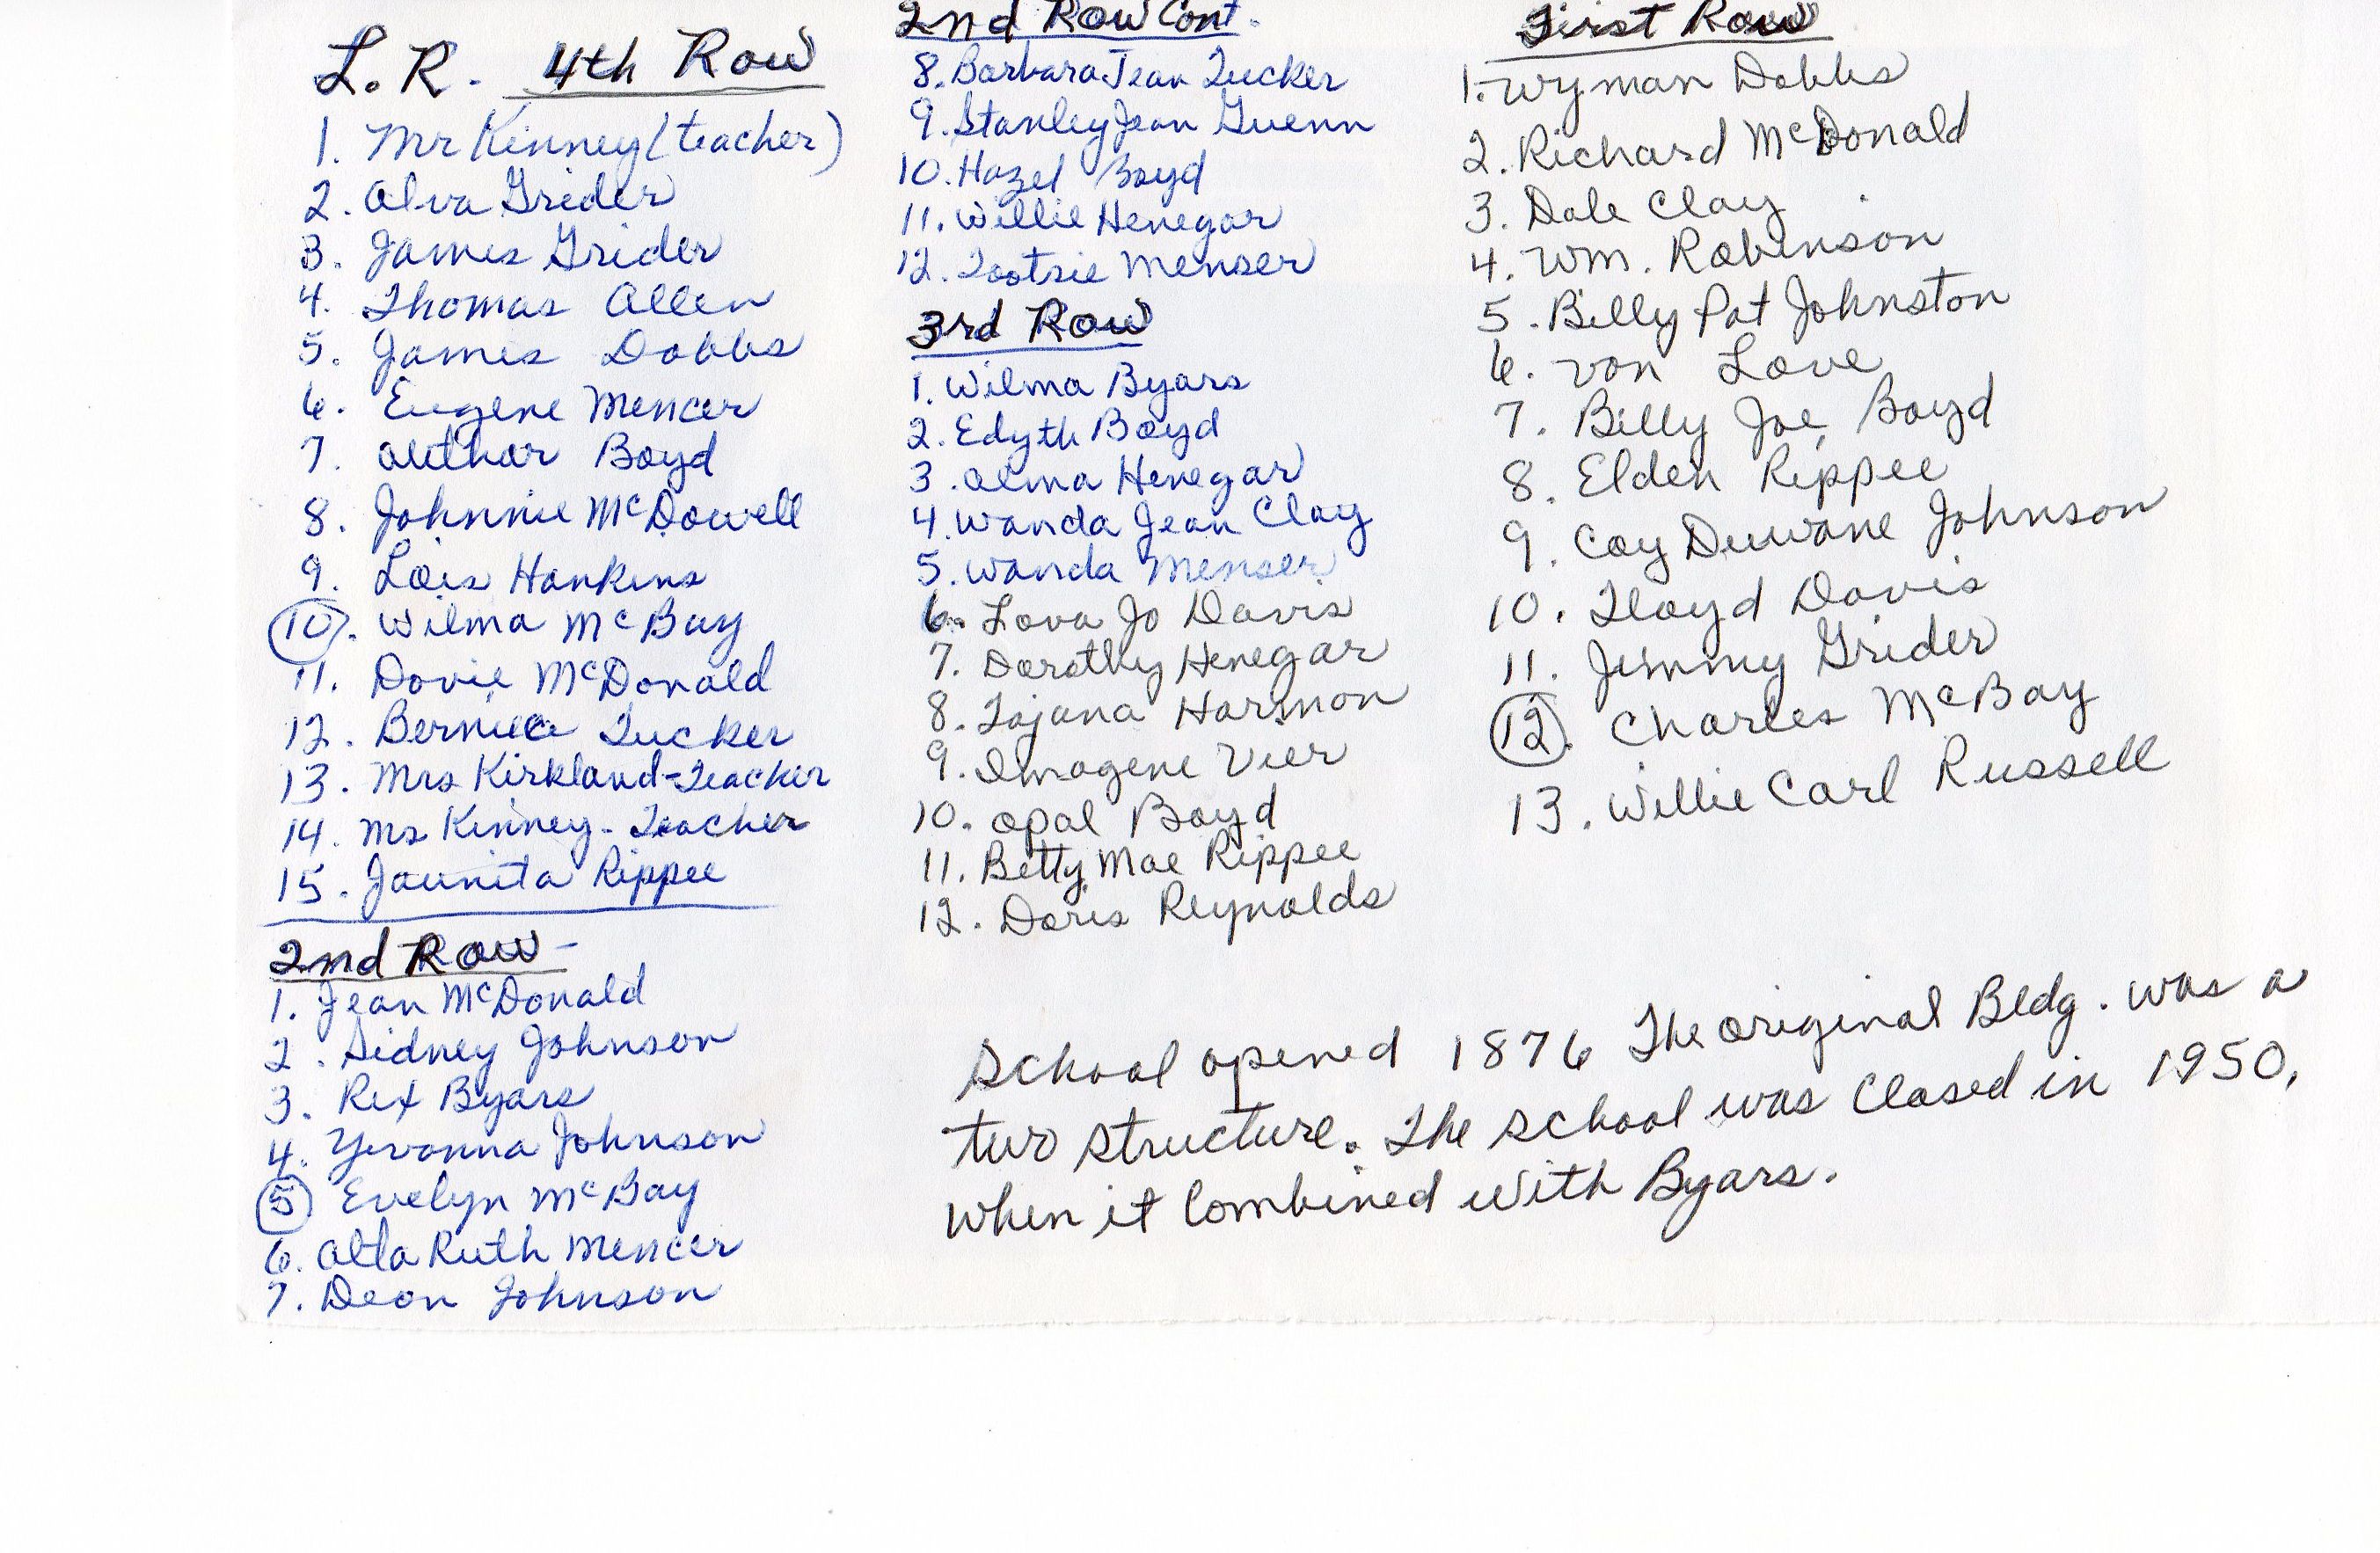 L.R. 4th Row
1. Mr Kinney (teacher)
2. Alva Grider
3. James Grider
4. Thomas Allen
5. James Dobbs
6. Eugene Mencer
7. Authar Boyd
8. Johnnie McDowell
9. Lois Hankins
10. Wilma McBay
11. Dovie McDonald
12. Bernice Tucker
13. Mrs Kirkland-Teacher
14. Ms Kinney-Teacher
15. Jaunita Rippee
2nd Row-
1. Jean McDonald
2. Sidney Johnson
3. Rex Byars
4. Yevonna Johnson
5 Evelyn McBay
6. Alta Ruth Mencer
7. Deon Johnson
2nd Row Cont.
8. Barbara Jean Tucker
9. Stanley Jean Guenn
10. Hazel Boyd
11. Willie Henegar
12. Tootsie Menser
3rd Row
1. Wilma Byars
2. Edyth Boyd
3. Alma Henegar
4. Wanda Jean Clay
5. Wanda Menser
6. Lova Jo Davis
7. Dorothy Henegar
8. Tajana Harmon
9. Imogene Vier
10. Opal Boyd
11. Betty Mae Rippee
12. Doris Reynolds
First Row
1. Wyman Dobbs
2. Richard McDonald
3. Dale Clay
4. Wm. Robinson
5. Billy Pat Johnston
6. Von Love
7. Billy Joe Boyd
8. Elden Rippee
9. Coy Duwane Johnson
10. Lloyd Davis
11. Jimmy Grider
12. Charles McBay
13. Willie Carl Russell
School opened 1876 The original Bldg. was a
two structure. The school was closed in 1950,
when it combined with Byars.